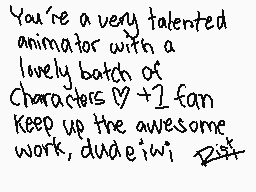 You're a very talented
animator with a
lovely batch of
characters ♡ +1 fan
Keep up the awesome
work, dude iwi